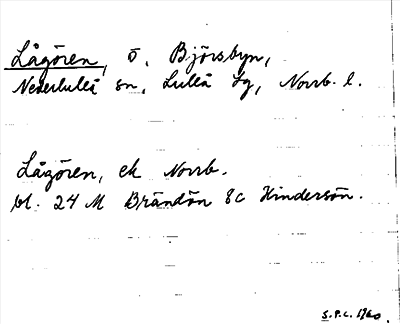 Lågören, ö, Björsbyn,
Nederluleå sn, Luleå tg, Norrb. l.
Lågören, ek Norrb.
bl. 24 M Brändön 8c Hindersön.
S.P.C. 1960.